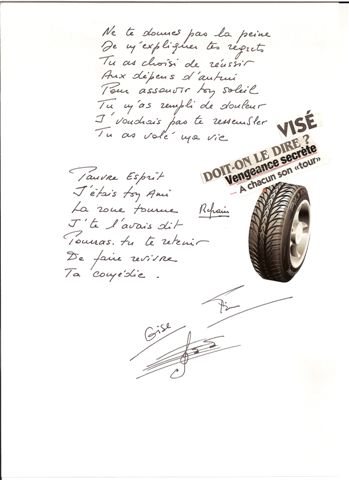 Ne te donnes pas la peine
De m'expliquer tes regrets
Tu as choisi de réussir
Aux dépens d'autrui
Pour assouvir ton soleil
Tu m'as rempli de douleur
J'voudrais pas te ressembler
Tu as volé ma vie
VISÉ
DOIT-ON LE DIRE ?
Vengeance secrète
A chacun son «tour»
Pauvre Esprit
J'étais ton Ami
La roue tourne
Refrain
J'te l'avais dit
Pourras-tu te retenir
De faire revivre
Ta comédie.
Fin
Gise